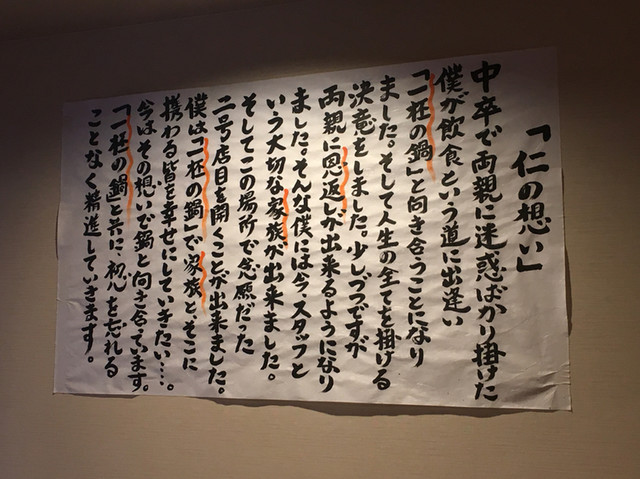 「仁の想い」
中卒で両親に迷惑ばかり掛けた
僕が飲食という道に出逢い
「一枉の鍋」と向き合うことになり
ました。そして人生の全てを掛ける
決意をしました。少しづつですが
両親に恩返しが出来るようになり
ました。そんな僕には今スタッフと
いう大切な家族が出来ました。
そしてこの場所で念願だった
二号店目を開くことが出来ました。
僕は「一枉の鍋」で家族と、そこに
携わる皆を幸せにしていきたい…。
今はその想いで鍋と向き合ています。
「一枉の鍋」と共に、初心を忘れる
ことなく精進していきます。